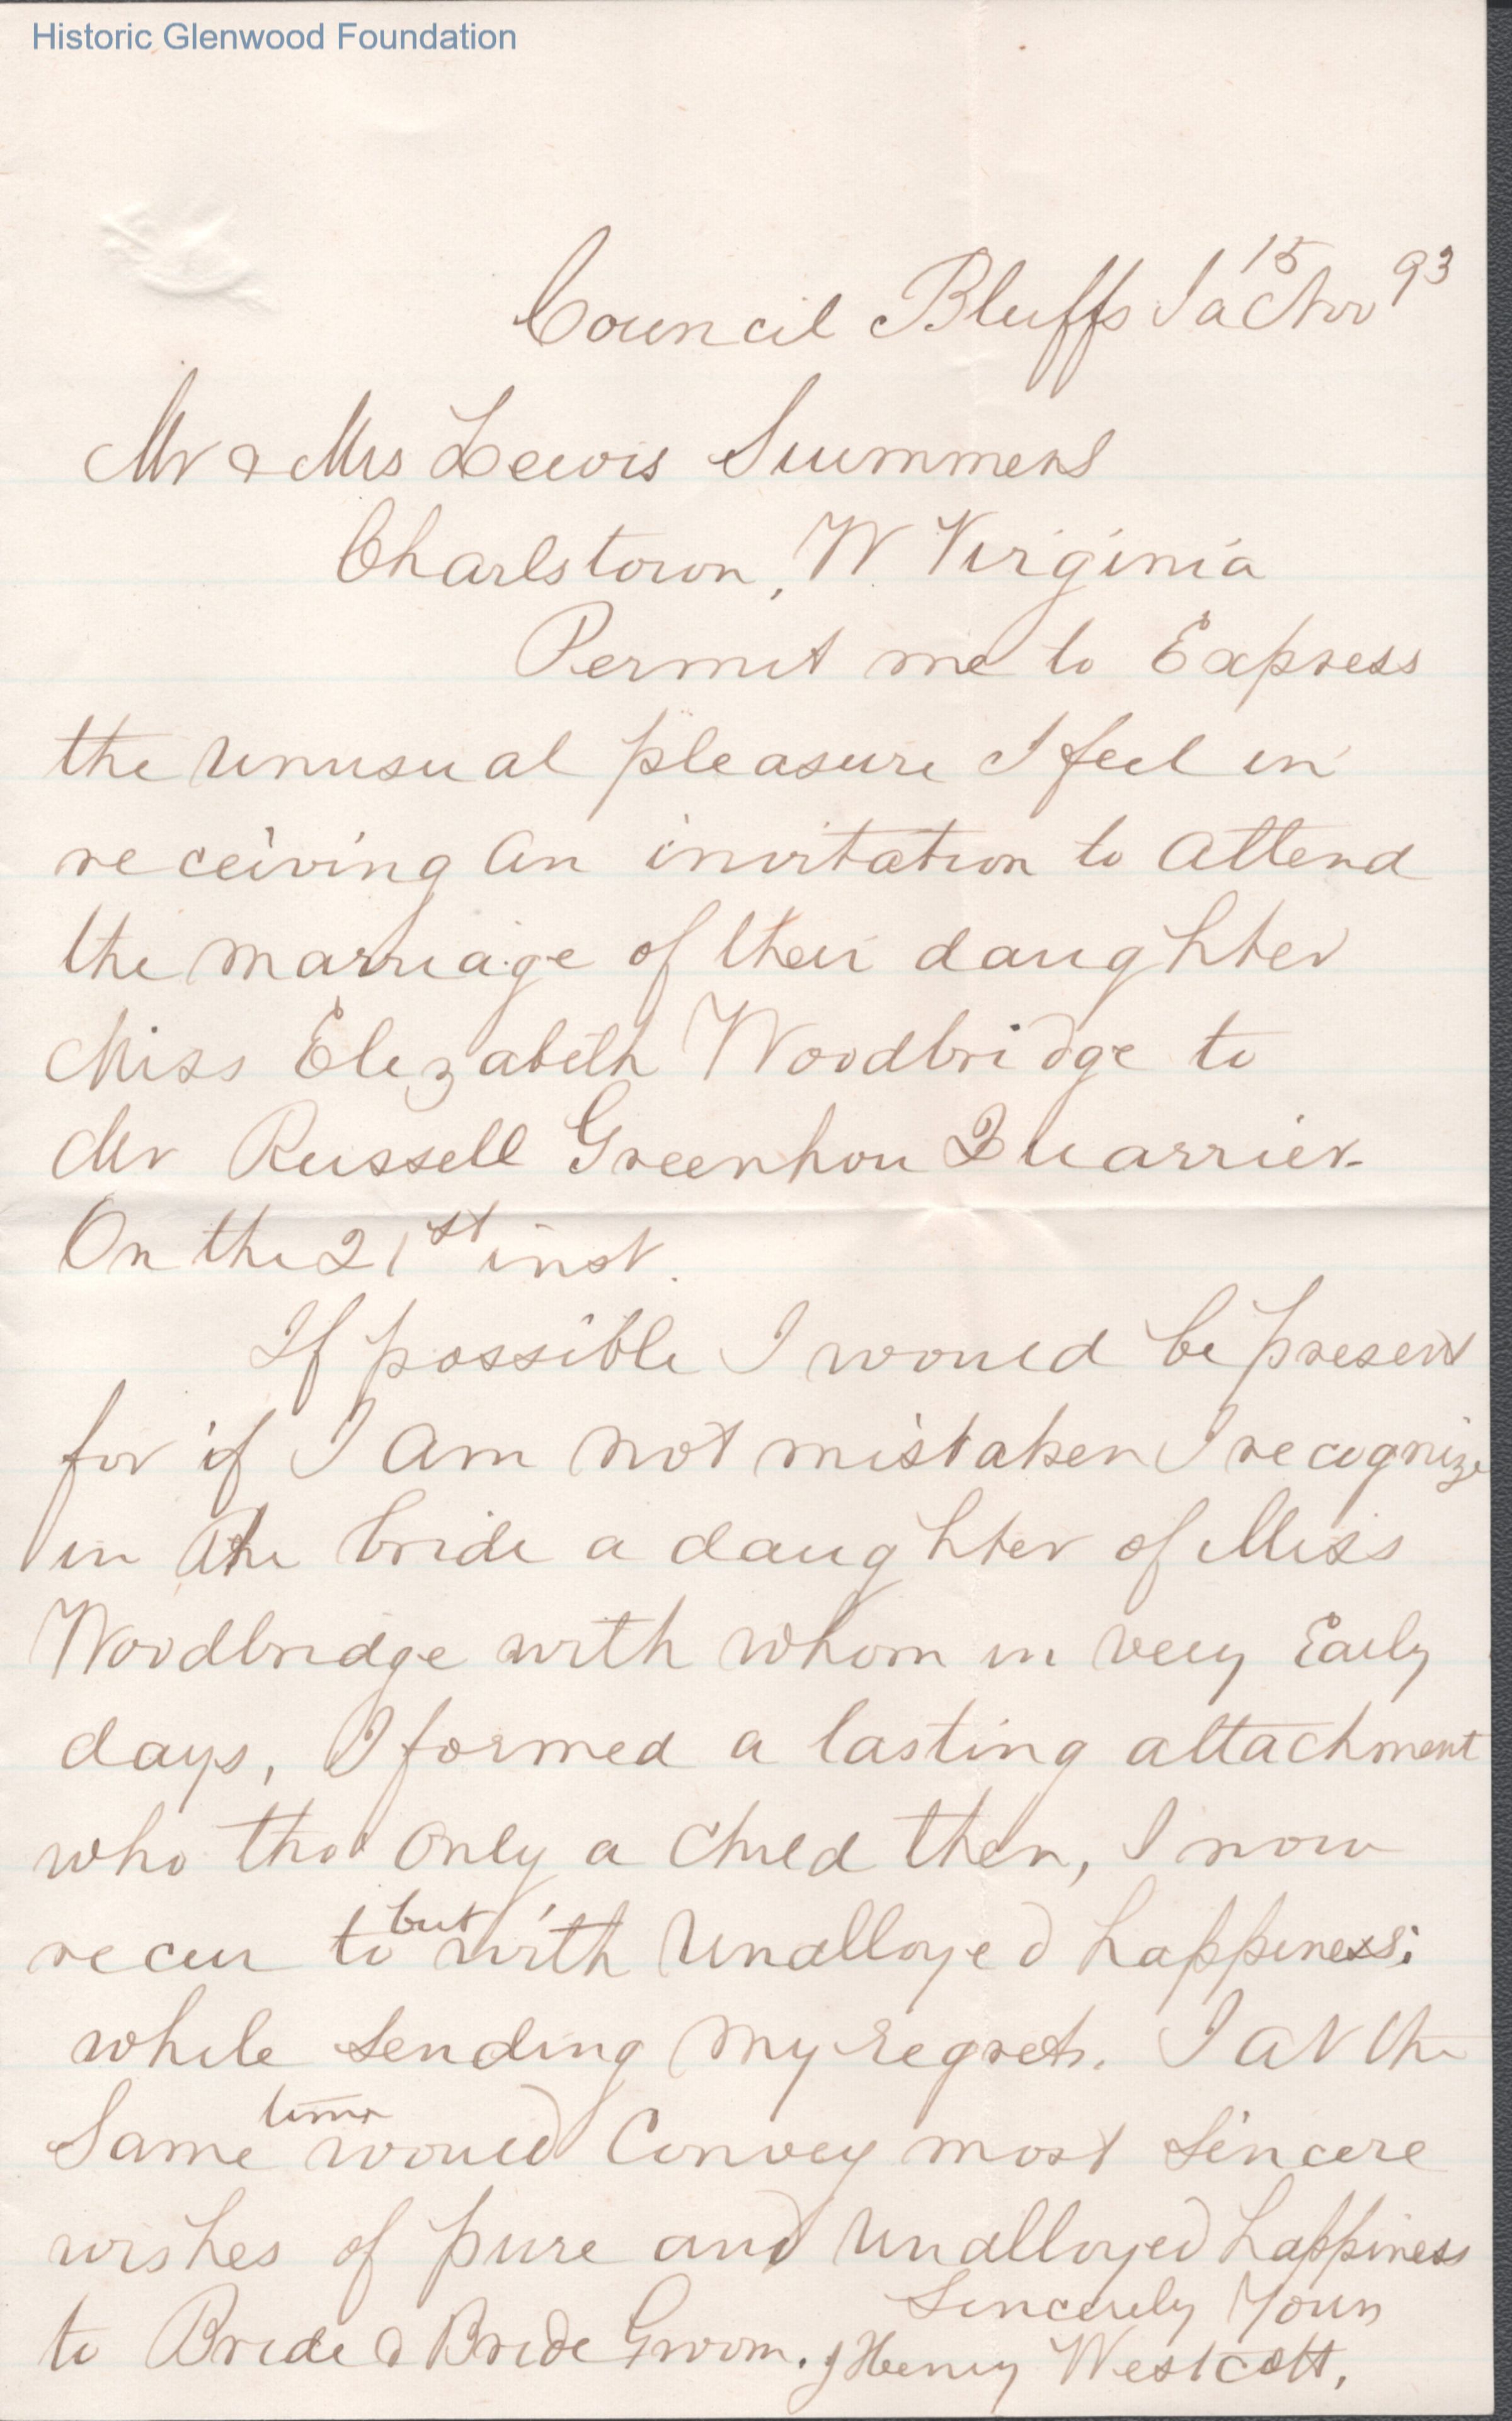 Historic Glenwood Foundation
Council Bluffs Ia 15 Nov 93
Mr & Mrs Lewis Summers
Charlstown, W. Virginia
Permit me to Express
the unusual pleasure I feel in
receiving an invitation to attend
the marriage of their daughter
Miss Elizabeth Woodbridge to
Mr Russell Greenhow Quarrier
On the 21st inst.
If possible I would be present
for if I am not mistaken I recognize
in the bride a daughter of Miss
Woodbridge with whom in very Early
days, I formed a lasting attachment
who tho' only a child then, I now
recur to but with unalloyed happiness:
while sending my regrets. I at the
Same time would Convey most sincere
wishes of pure and unalloyed happiness
to Bride & Bride Groom.
Sincerely Yours
J Henry Westcott.